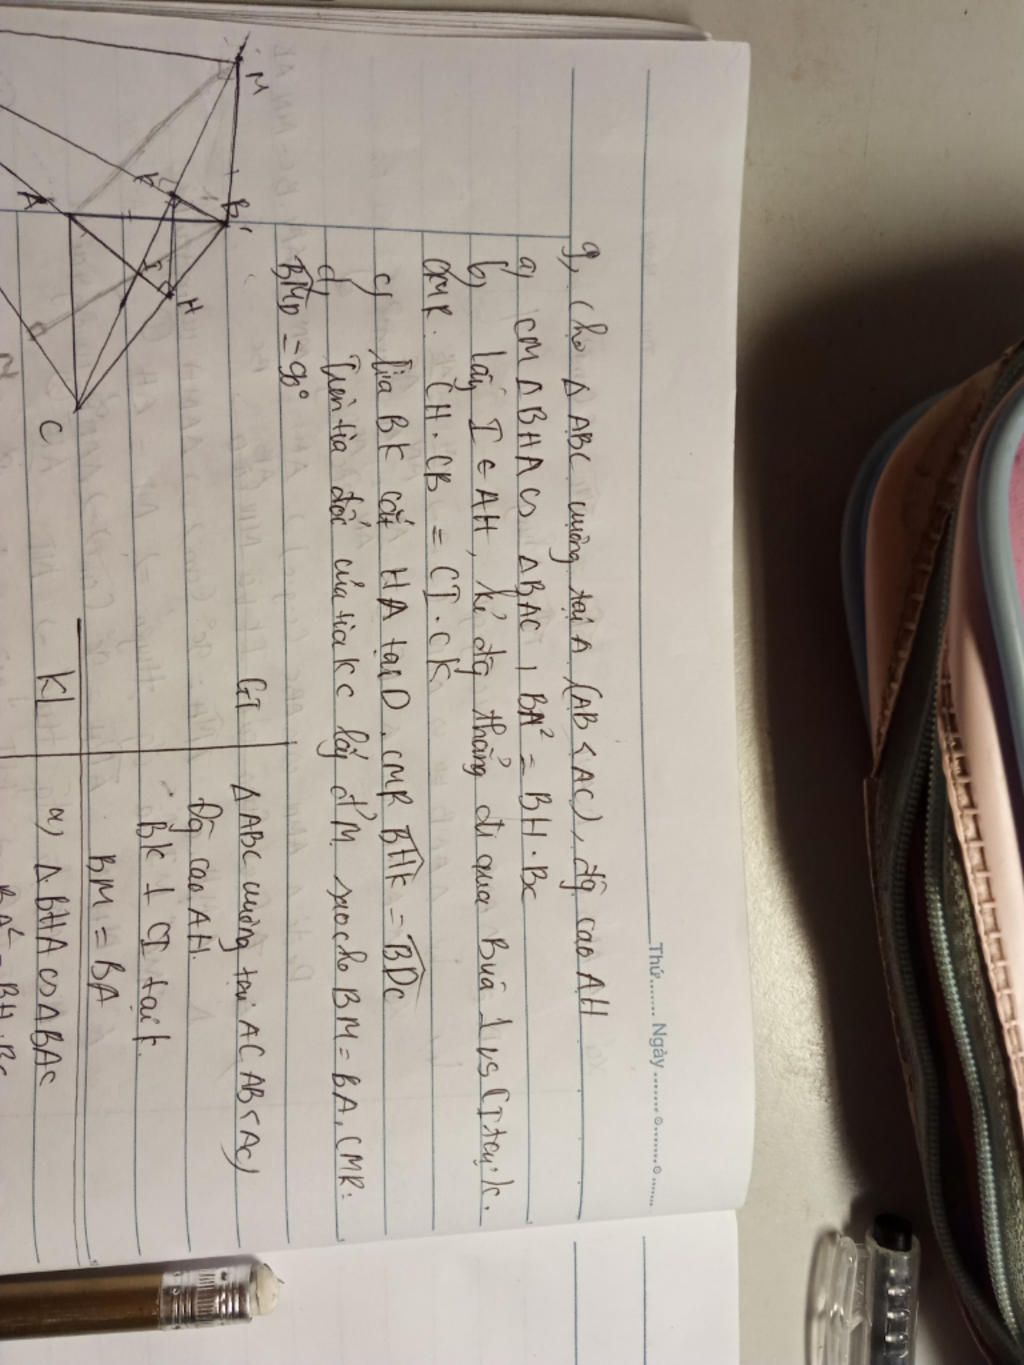 Thứ........ Ngày ........ o........ o ......
9, Cho Δ ABC vuông tại A (AB < AC), đg cao AH
a) CM Δ BHA ∽ Δ BAC, BA² = BH . BC
b, lấy I ∈ AH, kẻ đg thẳng đi qua B và ⊥ vs CI tại K.
CMR. CH . CB = CI . CK
c, tia BK cắt HA tại D. CMR BHK = BDC
d, Trên tia đối của tia KC lấy đ' M sao cho BM = BA. CMR:
BMD = 90°
GT Δ ABC vuông tại A (AB < AC)
Đg cao AH.
BK ⊥ CI tại K.
BM = BA
KL a) Δ BHA ∽ Δ BAC
BA² = BH . BC
M
K
B
A
I
H
C